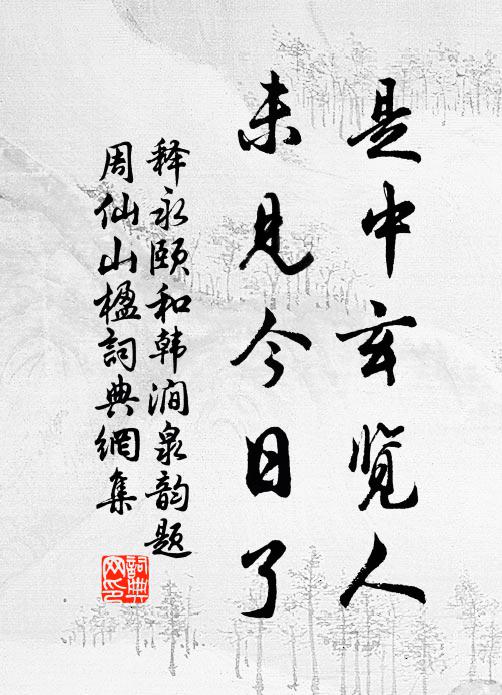 是中玄览人
未见今日了
释永颐和韩涧泉韵题
周仙山楹詞典網集
詞典网印